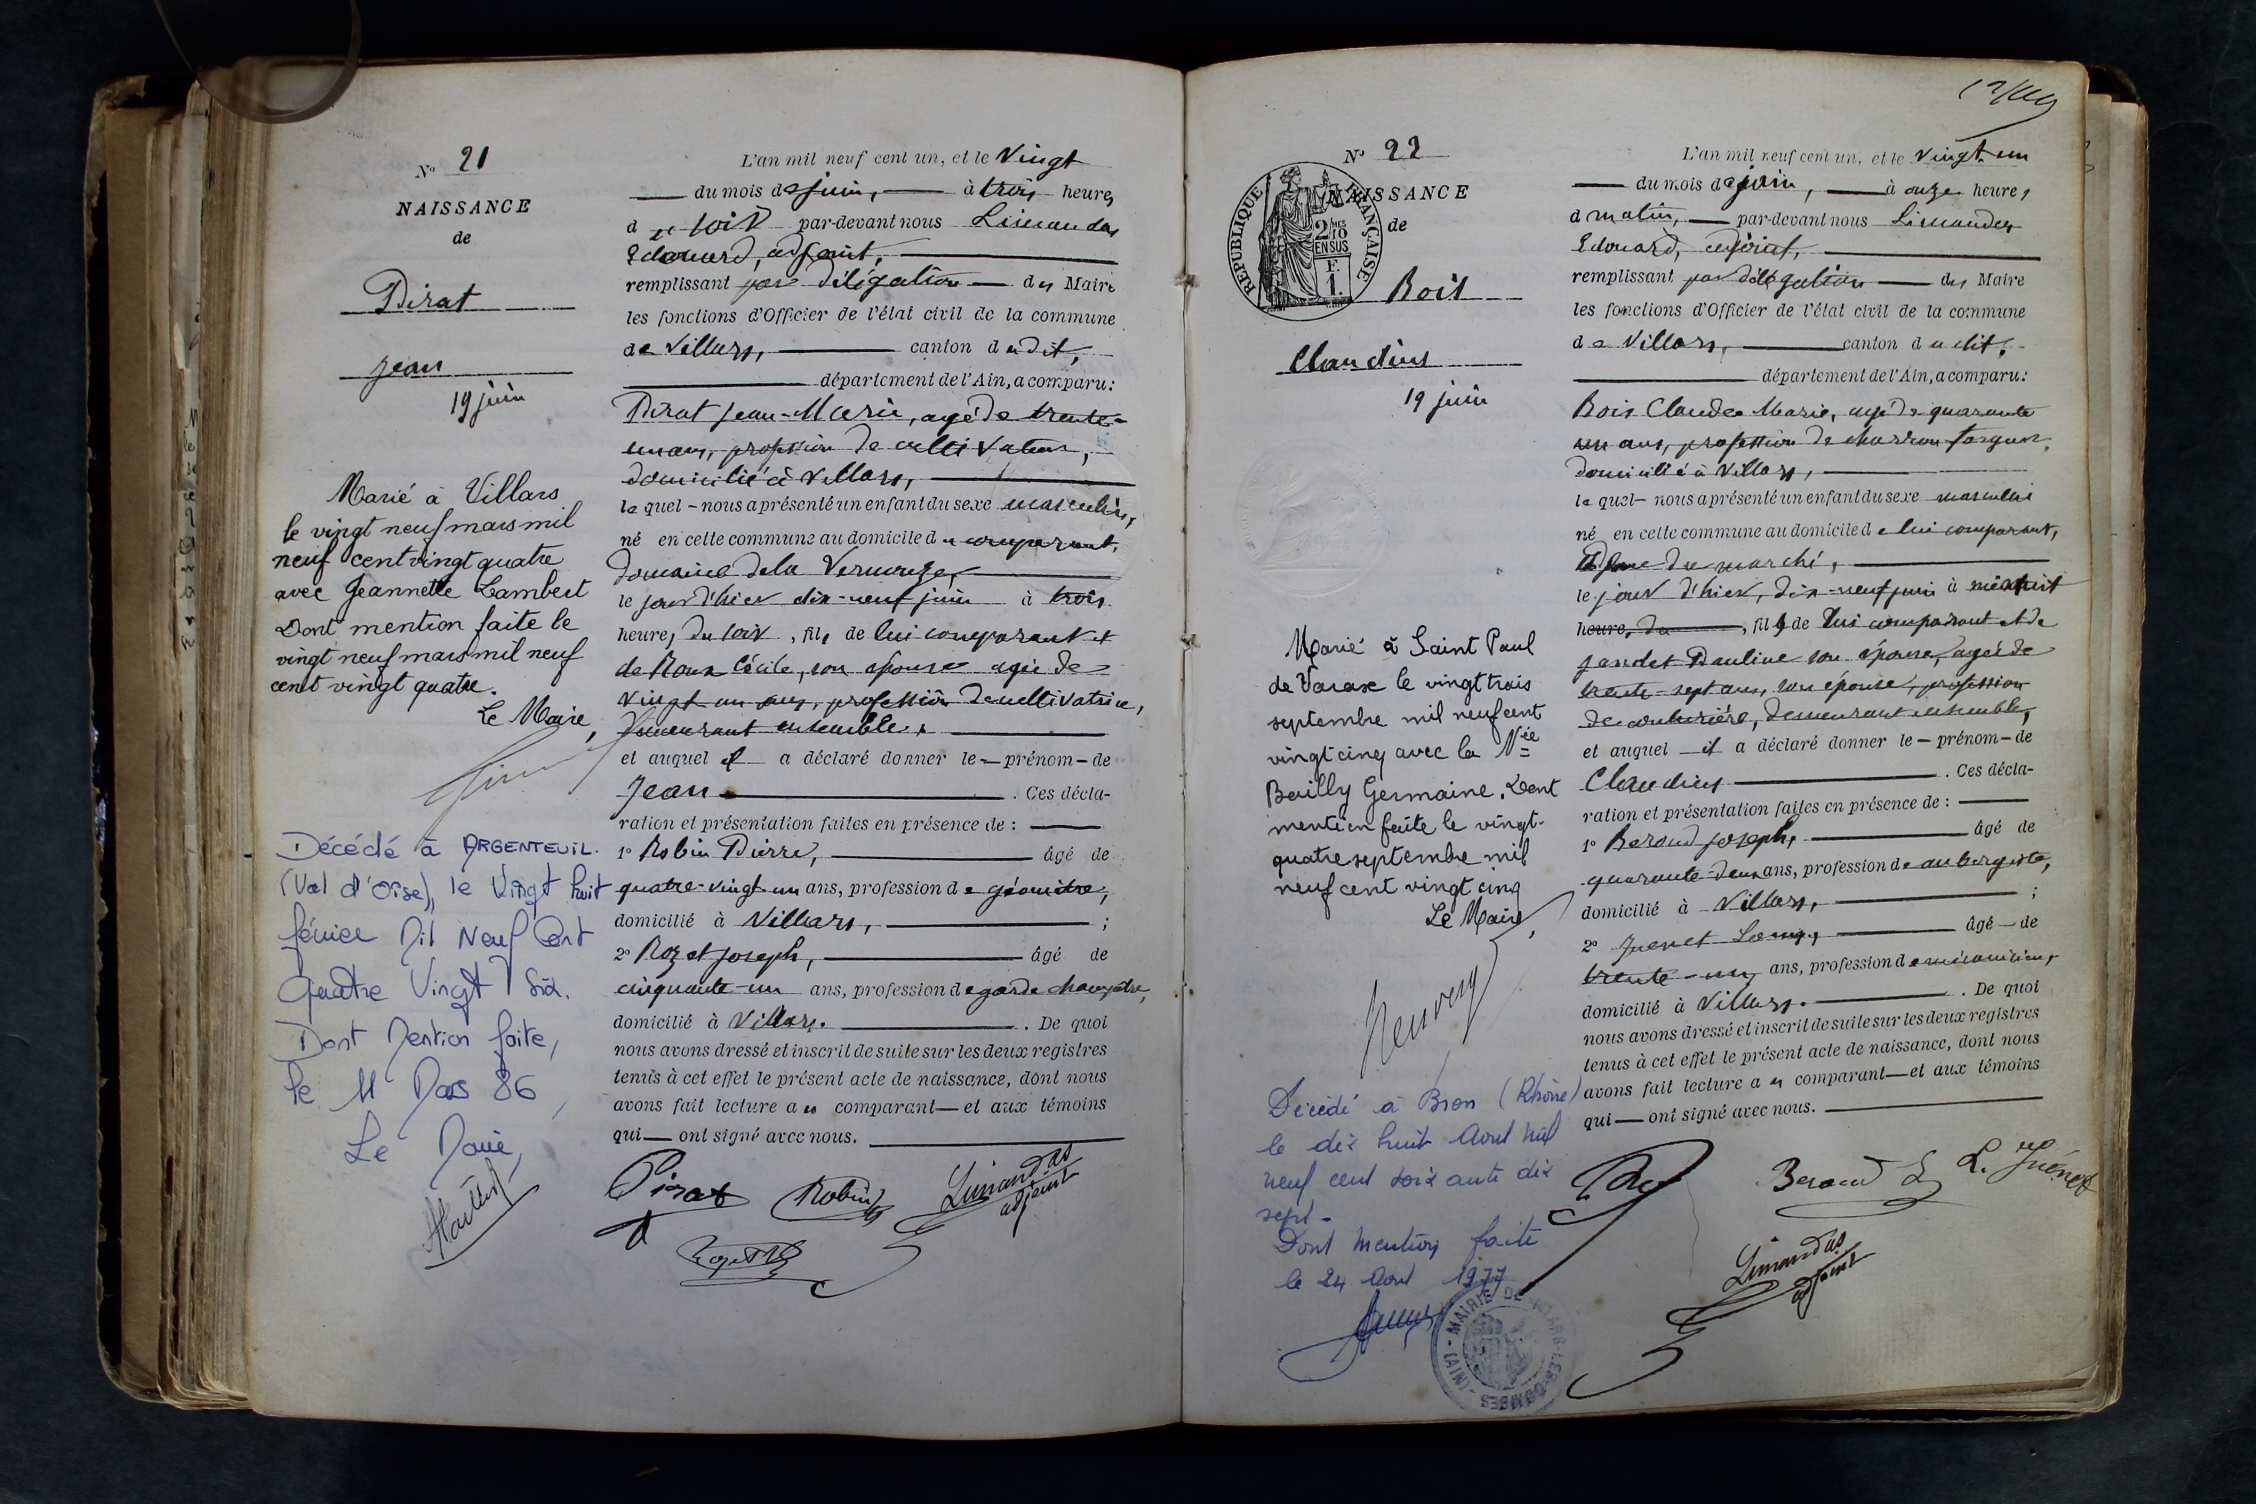 Nº 21
NAISSANCE
de
Pirat
Jean
19 juin
Marié à Villars
le vingt neuf mars mil
neuf cent vingt quatre
avec Jeannette Lambert
Dont mention faite le
vingt neuf mars mil neuf
cent vingt quatre.
Le Maire,
Décédé à ARGENTEUIL.
(Val d'Oise), le Vingt huit
février Mil Neuf Cent
Quatre Vingt Six.
Dont Mention faite,
le 11 Mars 86,
Le Maire,
L'an mil neuf cent un, et le Vingt
du mois de juin, à trois heures
du soir par-devant nous Limandas
Edouard, adjoint,
remplissant par délégation du Maire
les fonctions d'Officier de l'état civil de la commune
de Villars, canton du dit,
département de l'Ain, a comparu:
Pirat Jean-Marie, agé de trente-
un ans, profession de cultivateur,
domicilié à Villars,
lequel - nous a présenté un enfant du sexe masculin,
né en cette commune au domicile du comparant,
domaine de la
le jour d'hier dix-neuf juin à trois
heures du soir, fils de lui comparant et
de Roux Cécile, son épouse agée de
vingt un ans, profession de cultivatrice,
demeurant ensemble,
et auquel il a déclaré donner le - prénom - de
Jean. Ces décla-
ration et présentation faites en présence de :
1º Robin Pierre, âgé de
quatre-vingt-un ans, profession de géomètre,
domicilié à Villars, ;
2º Rozet Joseph, âgé de
cinquante-un ans, profession de garde champêtre,
domicilié à Villars. . De quoi
nous avons dressé et inscrit de suite sur les deux registres
tenus à cet effet le présent acte de naissance, dont nous
avons fait lecture au comparant — et aux témoins
qui — ont signé avec nous.
Pirat Robin Limandas
adjoint
Rozet
Nº 22
NAISSANCE
de
RÉPUBLIQUE FRANÇAISE
2/10 EN SUS
F. 1.
Bois
Claudius
19 juin
Marié à Saint Paul
de Varax le vingt trois
septembre mil neuf cent
vingt cinq avec la Née
Bailly Germaine. Dont
mention faite le vingt-
quatre septembre mil
neuf cent vingt cinq
Le Maire,
Décédé à Bron (Rhône)
le dix huit Aout mil
neuf cent soixante dix
sept -
Dont mention faite
le 24 Aout 1977
MAIRIE DE VILLARS-LES-DOMBES - (AIN)
L'an mil neuf cent un, et le vingt-un
du mois de juin, à onze heures
du matin, par-devant nous Limandas
Edouard, adjoint,
remplissant par délégation du Maire
les fonctions d'Officier de l'état civil de la commune
de Villars, canton du dit,
département de l'Ain, a comparu:
Bois Claude Marie, agé de quarante
un ans, profession de charron forgeur,
domicilié à Villars,
lequel - nous a présenté un enfant du sexe masculin
né en cette commune au domicile de lui comparant,
Place du marché,
le jour d'hier, dix-neuf juin à minuit
heure, du, fils de lui comparant et de
Jandet Pauline son épouse, agée de
trente-sept ans, son épouse, profession
de couturière, demeurant ensemble,
et auquel il a déclaré donner le - prénom - de
Claudius. Ces décla-
ration et présentation faites en présence de :
1º Beraud Joseph, âgé de
quarante-deux ans, profession de aubergiste,
domicilié à Villars, ;
2º Guenet Louis, âgé - de
trente-un ans, profession de mécanicien,
domicilié à Villars. . De quoi
nous avons dressé et inscrit de suite sur les deux registres
tenus à cet effet le présent acte de naissance, dont nous
avons fait lecture au comparant — et aux témoins
qui — ont signé avec nous.
Beraud L. Guénet
Limandas
adjoint